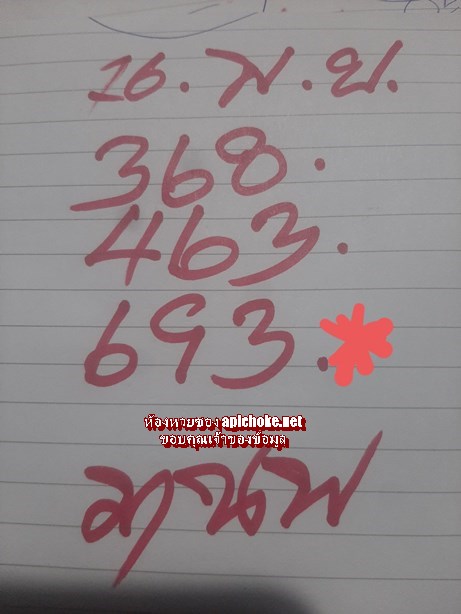 16.พ.ย.
368.
463.
693.
ห้องหวยของ apichoke.net
ขอบคุณเจ้าของข้อมูล